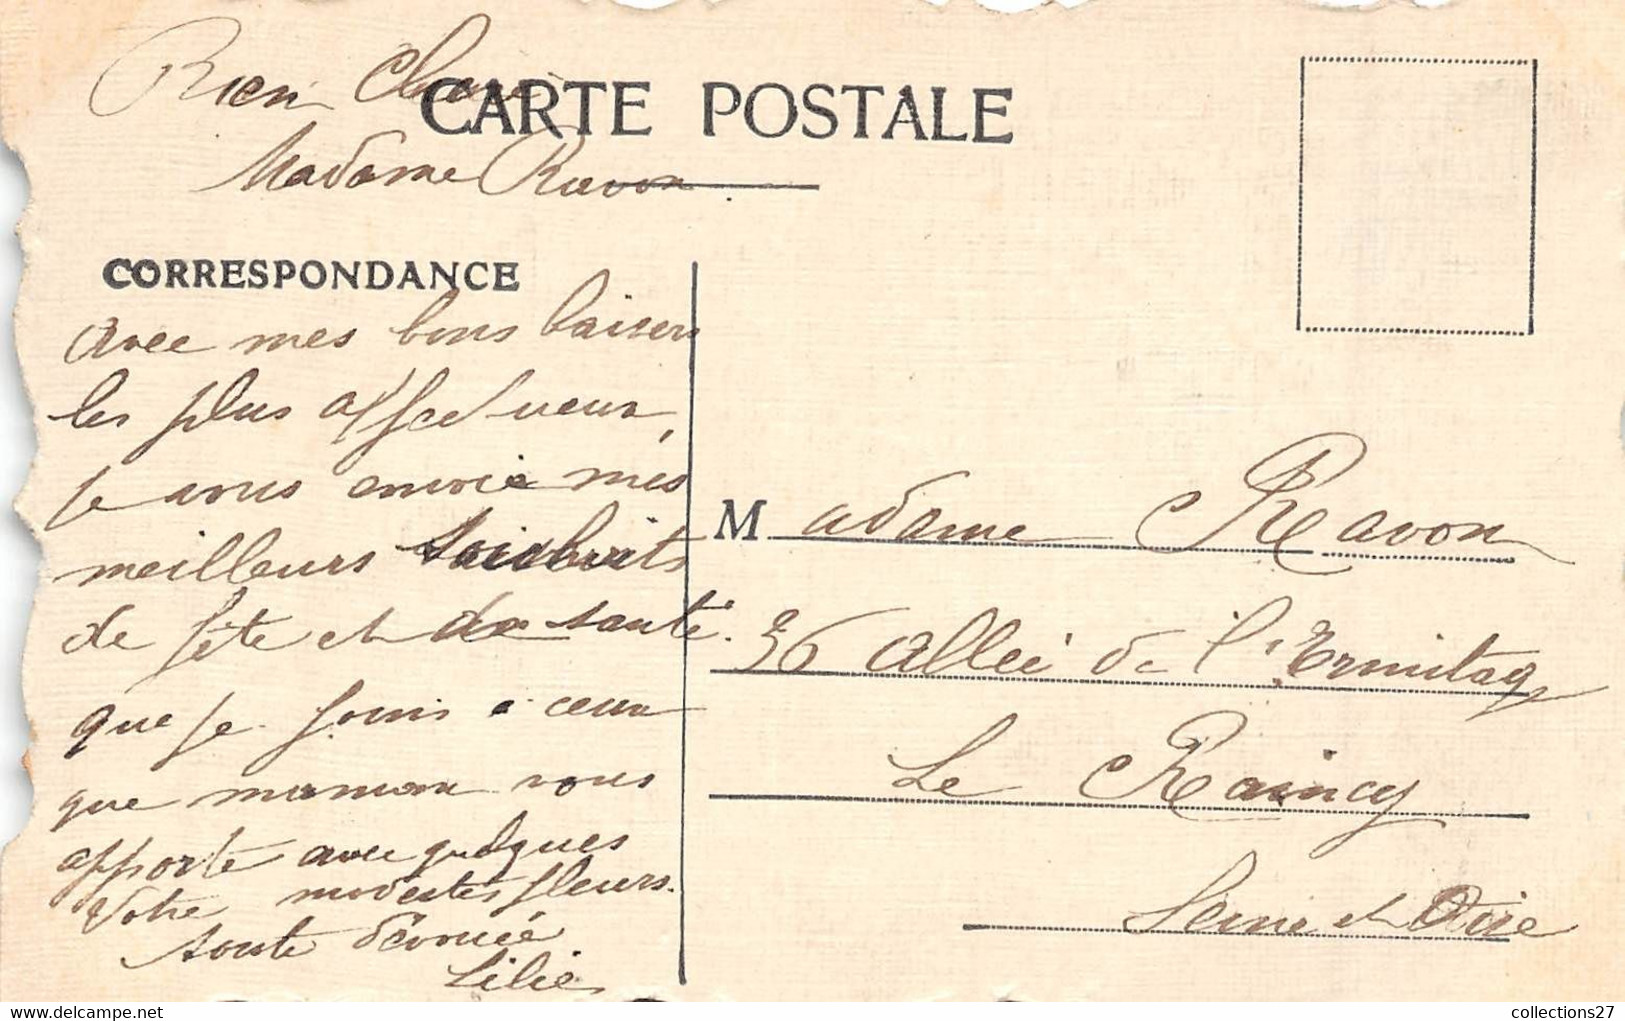 Bien Chère
CARTE POSTALE
Madame Ravon
CORRESPONDANCE
Avec mes bons baisers
les plus affectueux,
je vous envoie mes
meilleurs souhaits
de fête et de santé.
que je joins a ceux
que maman vous
apporte avec quelques
modestes fleurs.
Votre
toute dévouée
Lilie
Madame Ravon
36 Allée de l'Ermitage
Le Raincy
Seine et Oise
collections27